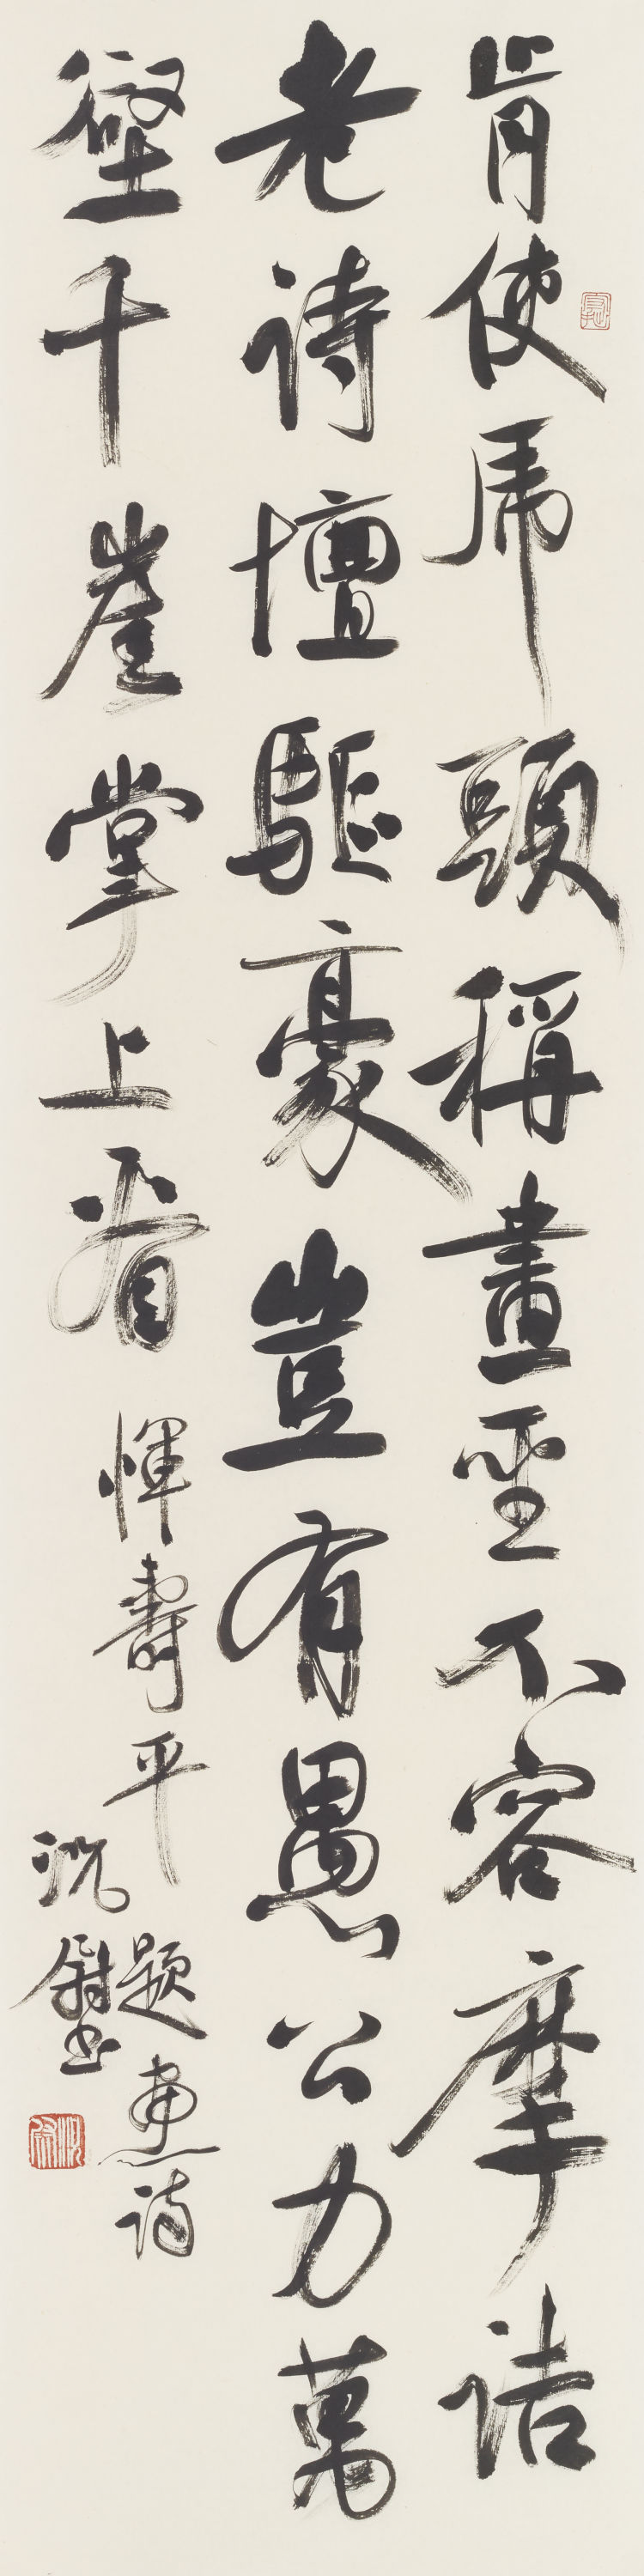 肯使虎頭稱畫聖不容摩詰
老詩壇驅豪豈有愚公力萬
壑千崖掌上看 惲壽平題畫詩
沈